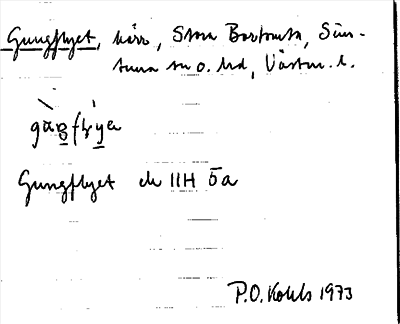 Gungflyet, kärr, Stora Bartomta, Sim-
tuna sn o. hd, Västm. l.
Gungflyet ek 11H 5a
P.O. Kohls 1973